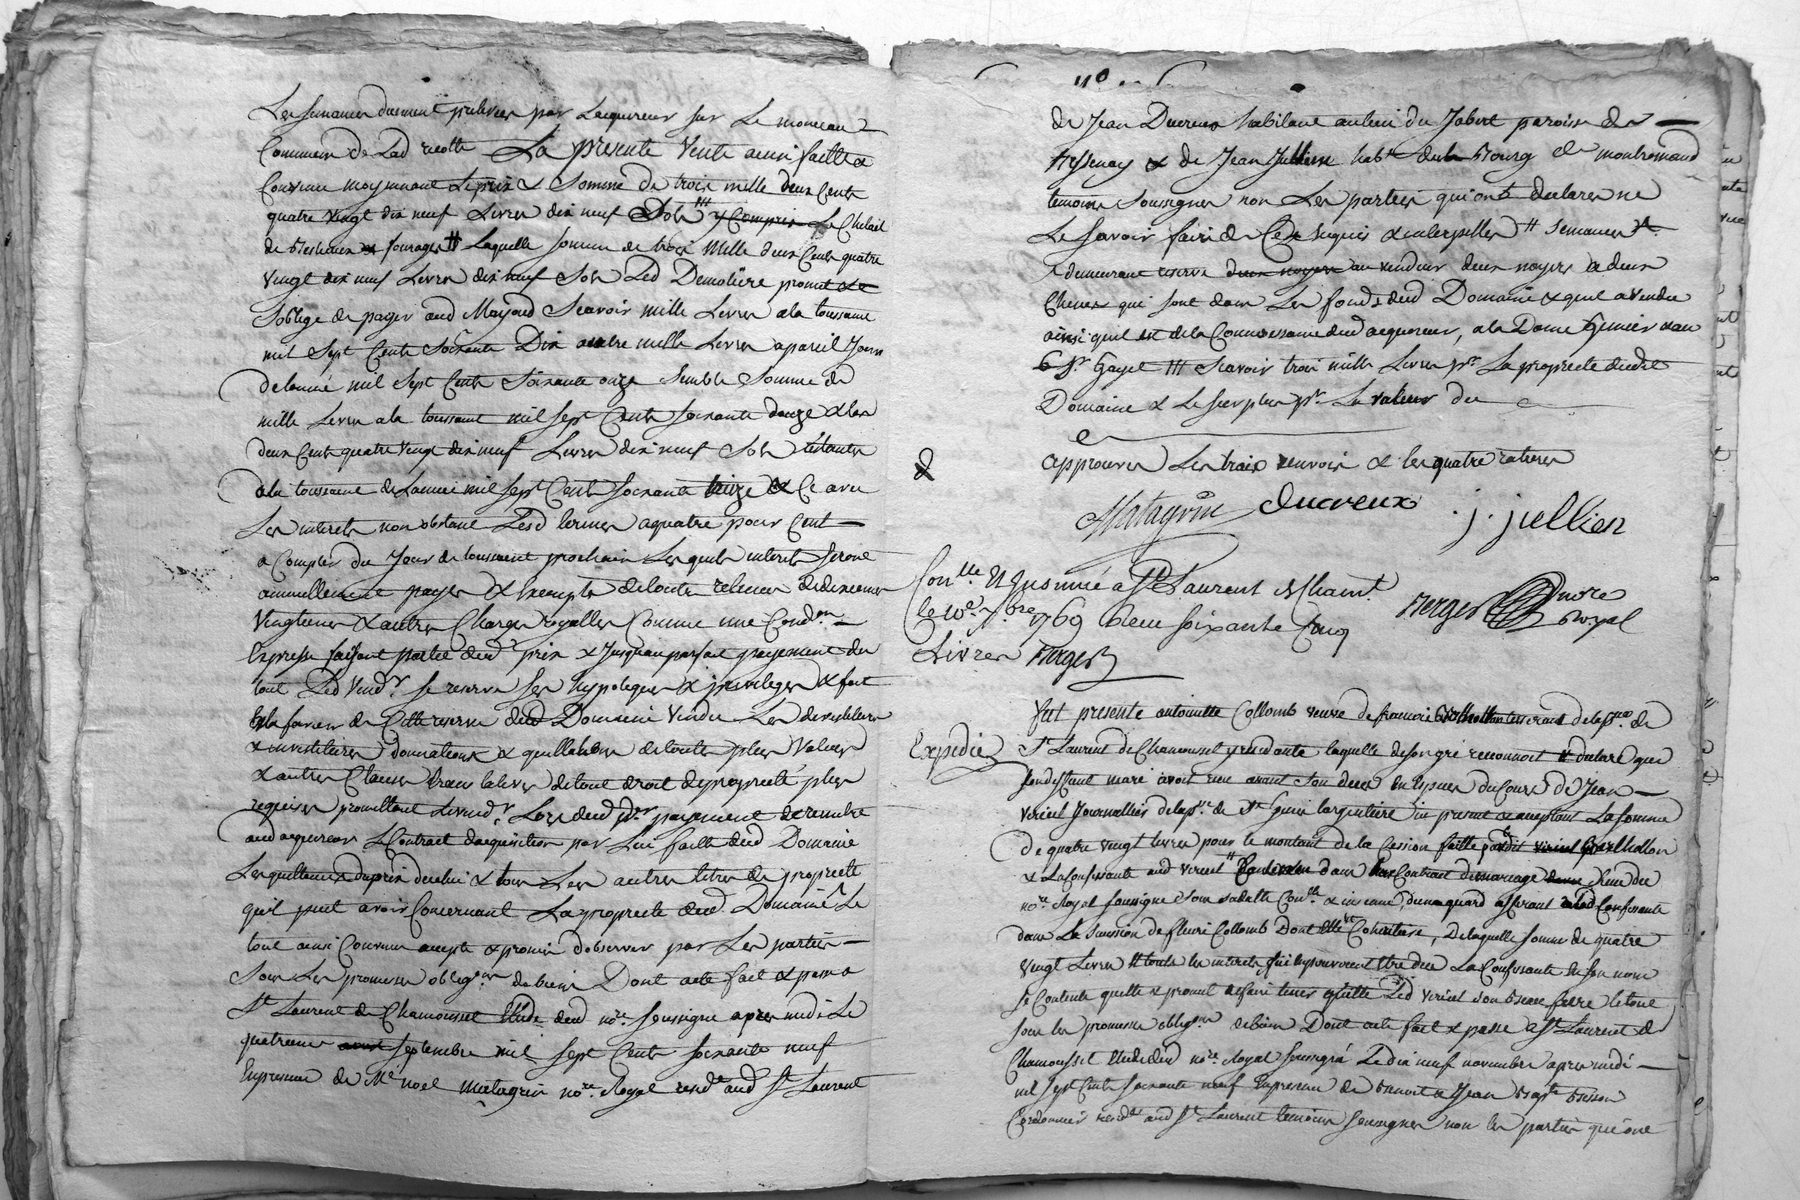 Les semances duement prelevées par Lacquereur sur Le monceau
Commun de Lad recolte La presente Vente ainsi faitte &
Convenue moyennant Le prix & Somme de trois mille deux Cents
quatre vingt dix neuf Livres dix neuf Sols y Compris Le Chetail
de Bestiaux & fourages # Laquelle somme de trois Mille deux Cents quatre
Vingt dix neuf Livres dix neuf Sols Led Demoliere promet &
Soblige de payer aud Mayoud Scavoir mille Livres a la toussaint
mil Sept Cents Soixante Dix autre mille Livres a pareil Jour
de lannée mil Sept Cents Soixante onze Semble Somme de
mille Livres a la toussaint mil Sept Cents Soixante douze & les
deux Cents quatre Vingt dix neuf Livres dix neuf Sols restants
a la toussaint de Lannée mil Sept Cents Soixante treize & Ce avec
Les interets non obstant Lesd termes a quatre pour Cent
a Compter du Jour de toussaint prochain Les quels interets seront
annuellement payés & Exempts de toutte retenue de dixieme
Vingtieme & autres Charges royalles Comme une Condon
Expresse faisant partie dud prix & Jusquau parfait payement du
tout Led Vendr se reserve ses hypoteques & privileges & fait
En la faveur de Cette reserve dud Domaine Vendu Les devestitures
& investitures donnations & quittations de toutte plus Valeur
& autres Clauses translatives de tout droit de propriete plus
requises promettant Levendr Lors dud payement de remettre
aud acquereur Le Contract dacquisition par Lui faitte dud Domaine
Les quittances du prix dicelui & tous Les autres titres de propriete
qu'il peut avoir Concernant La propriete dud Domaine Le
tout ainsi Convenu accepté & promis d'observer par Les parties
Sous Les promesses obligons de biens Dont acte fait & passé a
St Laurent de Chamousset Etude dud nore soussigné apres midi Le
quatrieme septembre mil sept Cents soixante neuf
En presence de Me noel Matagrin nore Royal residt aud St Laurent
de Jean Ducreux habitant au lieu du Jobert paroisse de
Hessenay & de Jean Jullien habt du Bourg de montromand
temoins Soussignes non Les parties qui ont declarés ne
Le Savoir faire de Ce Enquis & interpellés # Semances
demeurant reservé au vendeur deux noyers & deux
Chenes qui sont dans Les fonds dud Domaine & quil a Vendu
ainsi quil est de la Connoissance dud acquereur, a la Dame &
Sr Gayet /// Scavoir trois mille Livres pr La propriete dudit
Domaine & Le surplus pr La valeur du
approuvés Les trois renvois & les quatre ratures
Matagrin ducreux j. jullien
Conlle & Insinué a St Laurent de Chamt
Le 10e 7bre 1769 Reçu soixante Cinq
Livres Berger
Berger nore Royal
fut presente antoinette Collomb veuve de francois tisserand de la psse de
Expediée
St Laurent de Chamousset y residante laquelle de son gré reconnoit & declare que
fondeffunt mari avoit reçu avant Son deces En Especes du Cours de Jean
Vericel Journallier de la psse de St Genis Largentiere ici present & acceptant La Somme
De quatre vingt Livres pour le montant de la Cession faitte par
& La Confessante aud Vericel dans Leur Contract de mariage reçu du
nore Royal soussigné Sous sa datte Conlle & insinué, du quard afferant a lad Confessante
dans La Succession de fleuri Collomb Dont Elle Cohéritiere, De laquelle Somme de quatre
Vingt Livres & touts les interets qui En pouvoient Etre dus La Confessante En son nom
Se Contente quitte & promet de faire tenir quitte Led Vericel Son Beau frere le tout
Sous les promesses obligons de Biens Dont acte fait & passé a St Laurent de
Chamousset Etude dud nore Royal soussigné Le dix neuf novembre apres midi
mil Sept Cents Soixante neuf En presence de Benoit & Jean Bapte Brisson
Cordonnier residts aud St Laurent temoins Soussignés non les parties qui ont